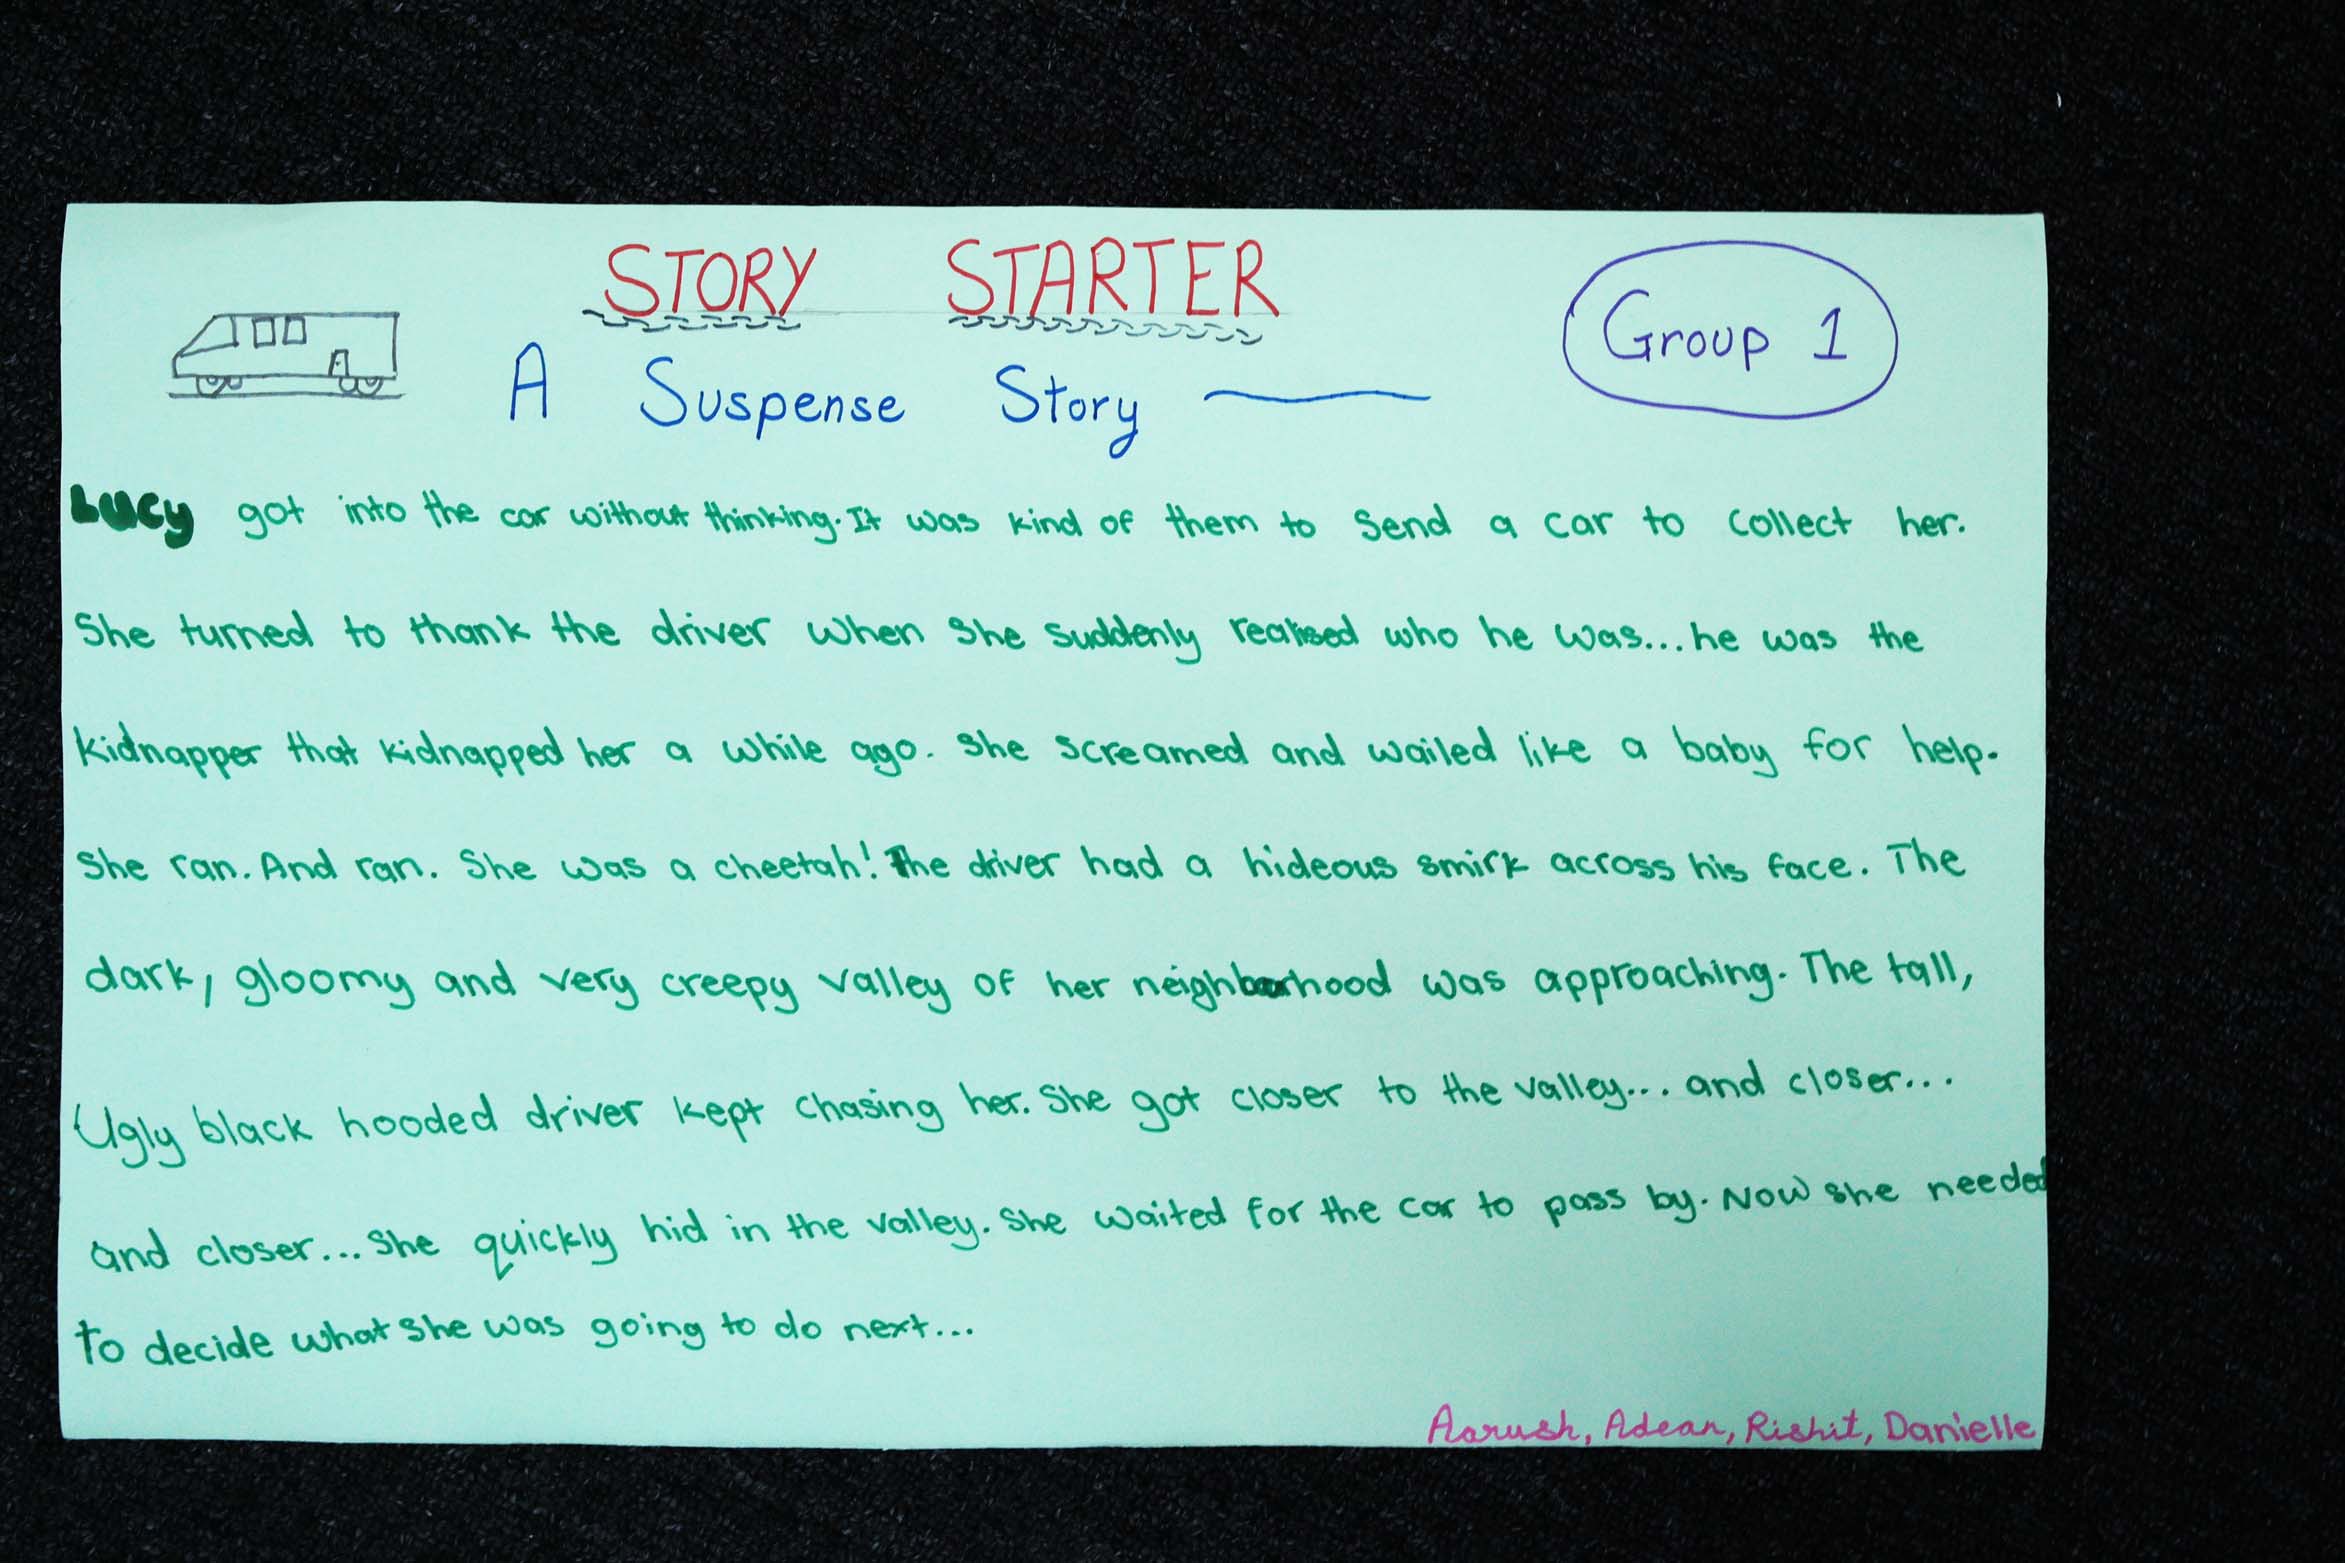 STORY STARTER
Group 1
A Suspense Story
Lucy got into the car without thinking. It was kind of them to send a car to collect her.
She turned to thank the driver when she suddenly realised who he was...he was the
kidnapper that kidnapped her a while ago. She screamed and wailed like a baby for help.
She ran. And ran. She was a cheetah! The driver had a hideous smirk across his face. The
dark, gloomy and very creepy valley of her neighbourhood was approaching. The tall,
Ugly black hooded driver kept chasing her. She got closer to the valley... and closer...
and closer... She quickly hid in the valley. She waited for the car to pass by. Now she needed
to decide what she was going to do next...
Aarush, Adean, Rishit, Danielle